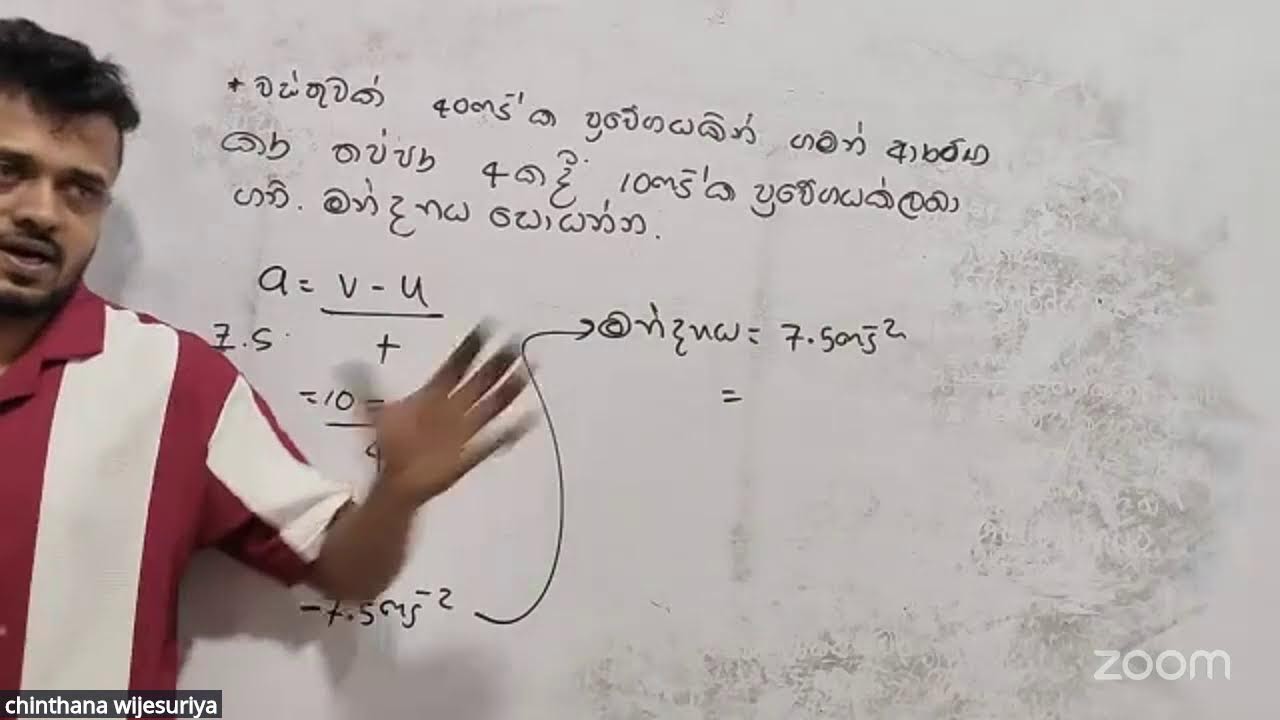 * වස්තුවක් 40ms⁻¹ක ප්‍රවේගයකින් ගමන් ආරම්භ
කර තප්පර 4කදී 10ms⁻¹ක ප්‍රවේගයක් ලබා
ගනී. මන්දනය සොයන්න.
a = v - u
7.5 t
= 10 -
4
-7.5ms⁻²
මන්දනය = 7.5ms⁻²
=
zoom
chinthana wijesuriya